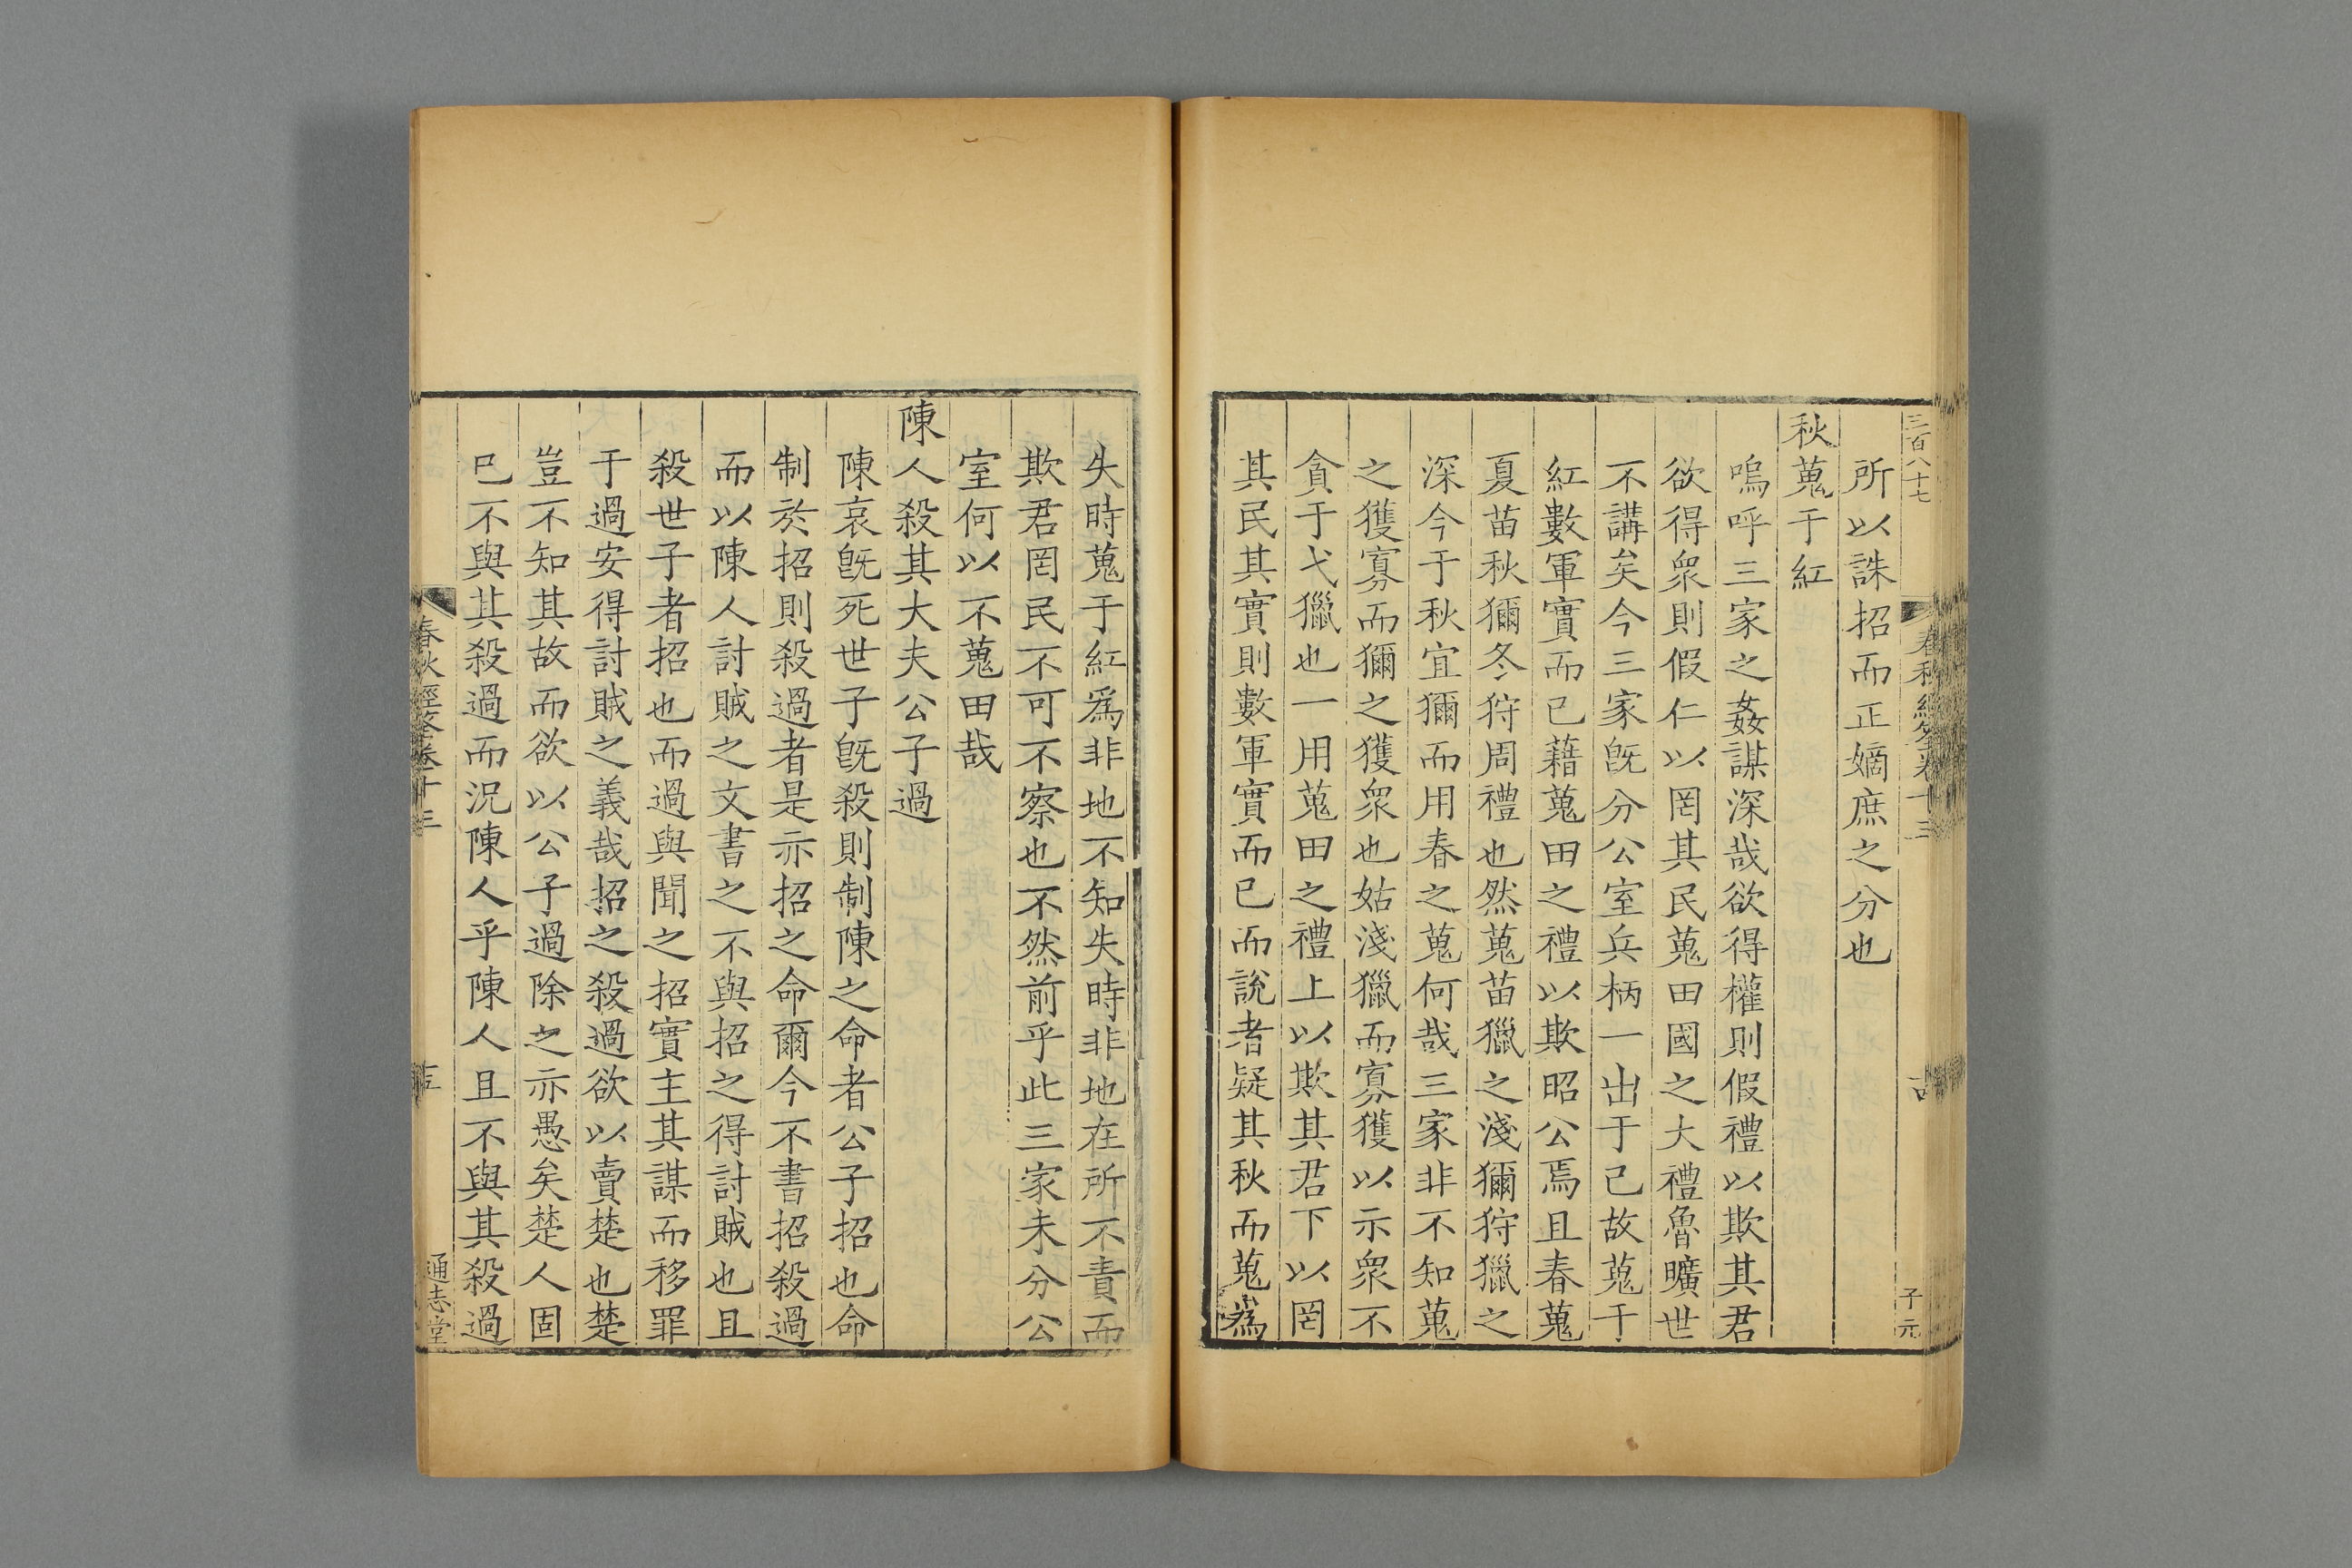 三百八十七
春秋經筌卷十三
古
子元
所以誅招而正嫡庶之分也
秋蒐于紅
嗚呼三家之姦謀深哉欲得權則假禮以欺其君
欲得衆則假仁以罔其民蒐田國之大禮魯曠世
不講矣今三家旣分公室兵柄一出于己故蒐于
紅數軍實而已藉蒐田之禮以欺昭公焉且春蒐
夏苗秋獮冬狩周禮也然蒐苗獵之淺獮狩獵之
深今于秋宜獮而用春之蒐何哉三家非不知蒐
之獲寡而獮之獲衆也姑淺獵而寡獲以示衆不
貪于弋獵也一用蒐田之禮上以欺其君下以罔
其民其實則數軍實而已而說者疑其秋而蒐爲
失時蒐于紅爲非地不知失時非地在所不責而
欺君罔民不可不察也不然前乎此三家未分公
室何以不蒐田哉
陳人殺其大夫公子過
陳哀旣死世子旣殺則制陳之命者公子招也命
制於招則殺過者是亦招之命爾今不書招殺過
而以陳人討賊之文書之不與招之得討賊也且
殺世子者招也而過與聞之招實主其謀而移罪
于過安得討賊之義哉招之殺過欲以賣楚也楚
豈不知其故而欲以公子過除之亦愚矣楚人固
已不與其殺過而況陳人乎陳人且不與其殺過
春秋經筌卷十三
十五
通志堂